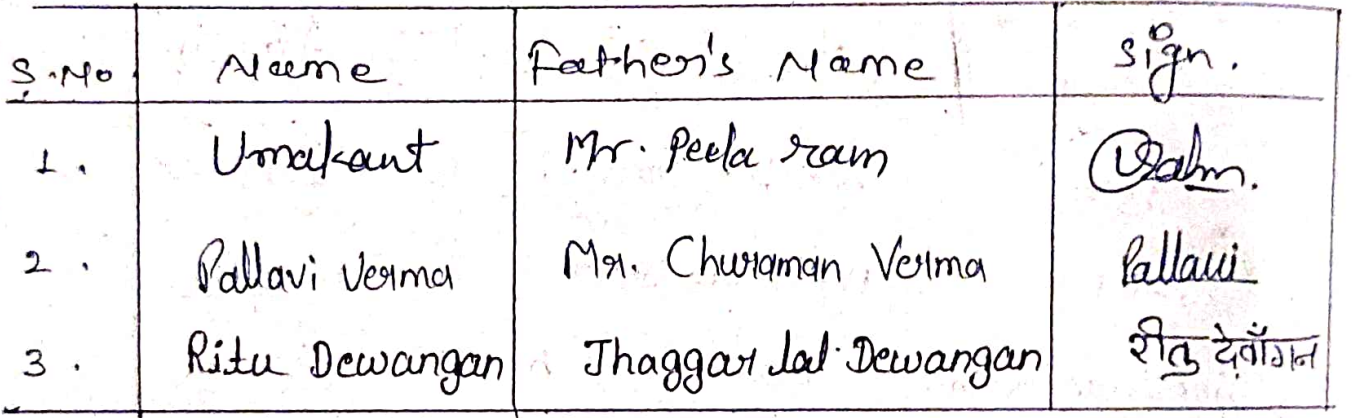 S.No Name Father's Name Sign.
1. Umakant Mr. Peela ram
2. Pallavi Verma Mr. Churaman Verma Pallavi
3. Ritu Dewangan Jhaggar lal Dewangan रीतु देवाँगन